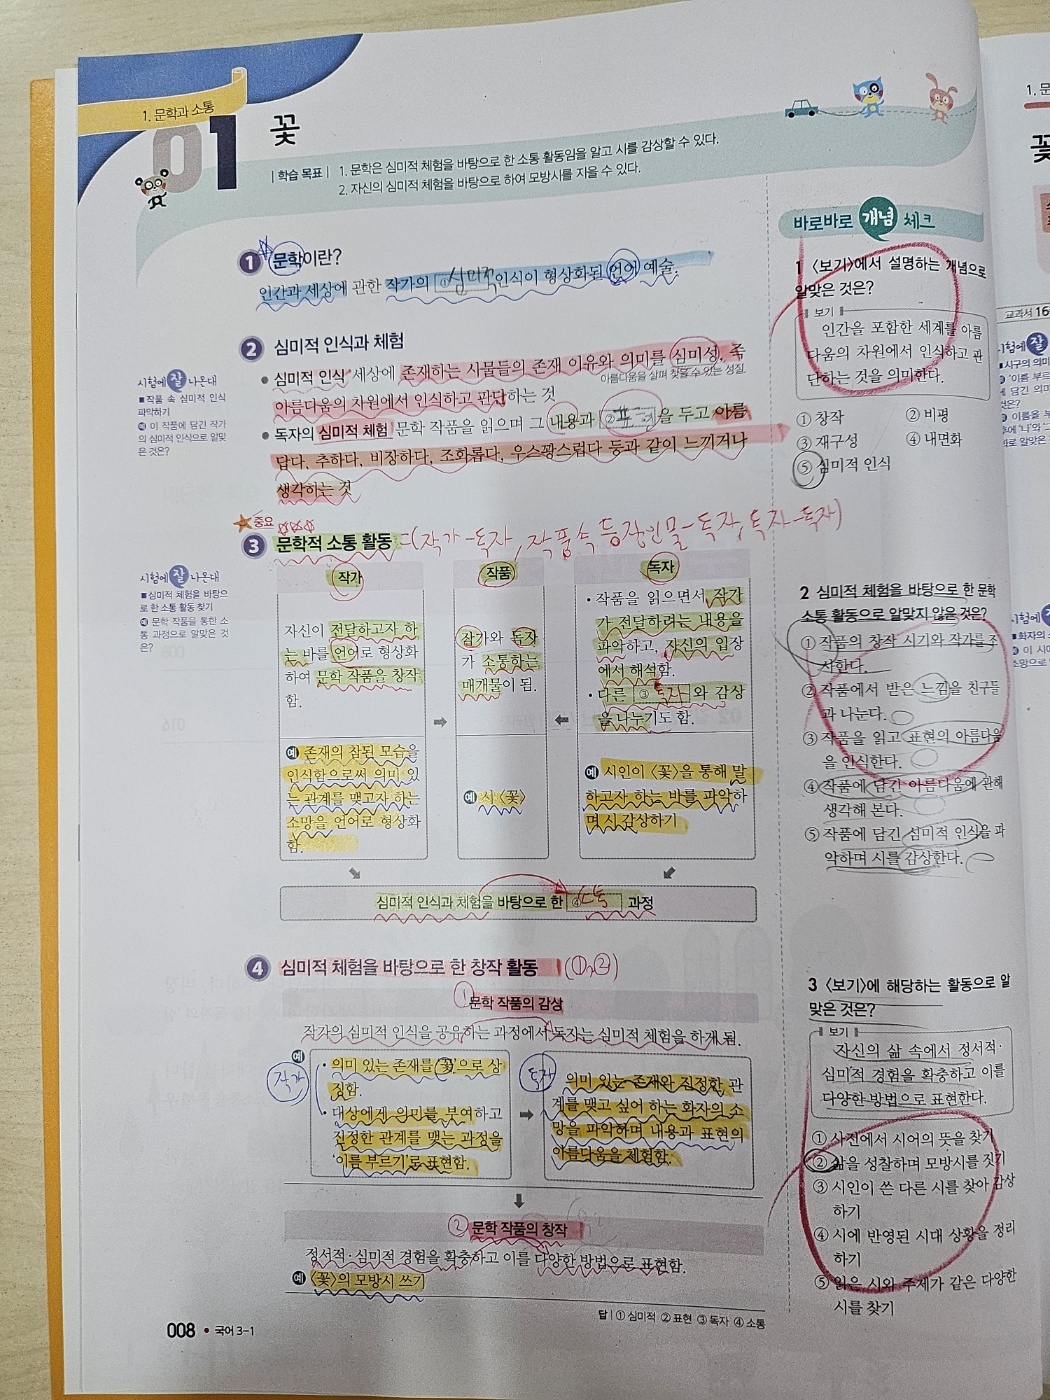 1. 문학과 소통
01
꽃
| 학습 목표 | 1. 문학은 심미적 체험을 바탕으로 한 소통 활동임을 알고 시를 감상할 수 있다.
2. 자신의 심미적 체험을 바탕으로 하여 모방시를 지을 수 있다.
1 문학이란?
인간과 세상에 관한 작가의 ① 심미적 인식이 형상화된 언어 예술.
2 심미적 인식과 체험
시험에 잘 나온대
■ 작품 속 심미적 인식
파악하기
예 이 작품에 담긴 작가
의 심미적 인식으로 알맞
은 것은?
• 심미적 인식 세상에 존재하는 사물들의 존재 이유와 의미를 심미성, 즉
아름다움을 살펴 찾을 수 있는 성질.
아름다움의 차원에서 인식하고 판단하는 것
• 독자의 심미적 체험 문학 작품을 읽으며 그 내용과 ② 표현을 두고 아름
답다, 추하다, 비장하다, 조화롭다, 우스꽝스럽다 등과 같이 느끼거나
생각하는 것
중요
3 문학적 소통 활동 = (작가-독자, 작품속 등장인물-독자, 독자-독자)
시험에 잘 나온대
■ 심미적 체험을 바탕으
로 한 소통 활동 찾기
예 문학 작품을 통한 소
통 과정으로 알맞은 것
은?
작가
자신이 전달하고자 하
는 바를 언어로 형상화
하여 문학 작품을 창작
함.
예 존재의 참된 모습을
인식함으로써 의미 있
는 관계를 맺고자 하는
소망을 언어로 형상화
함.
작품
작가와 독자
가 소통하는
매개물이 됨.
예 시 〈꽃〉
독자
• 작품을 읽으면서 작가
가 전달하려는 내용을
파악하고, 자신의 입장
에서 해석함.
• 다른 ③ 독자와 감상
을 나누기도 함.
예 시인이 〈꽃〉을 통해 말
하고자 하는 바를 파악하
며 시 감상하기
심미적 인식과 체험을 바탕으로 한 ④ 소통 과정
4 심미적 체험을 바탕으로 한 창작 활동 (①,②)
① 문학 작품의 감상
작가의 심미적 인식을 공유하는 과정에서 독자는 심미적 체험을 하게 됨.
예
작가
• 의미 있는 존재를 '꽃'으로 상
징함.
• 대상에게 의미를 부여하고
진정한 관계를 맺는 과정을
'이름 부르기'로 표현함.
독자
의미 있는 존재와 진정한 관
계를 맺고 싶어 하는 화자의 소
망을 파악하며 내용과 표현의
아름다움을 체험함.
② 문학 작품의 창작
정서적·심미적 경험을 확충하고 이를 다양한 방법으로 표현함.
예 〈꽃〉의 모방시 쓰기
답 | ① 심미적 ② 표현 ③ 독자 ④ 소통
008 • 국어 3-1
바로바로 개념 체크
1 〈보기〉에서 설명하는 개념으로
알맞은 것은?
보기
인간을 포함한 세계를 아름
다움의 차원에서 인식하고 판
단하는 것을 의미한다.
① 창작 ② 비평
③ 재구성 ④ 내면화
⑤ 심미적 인식
2 심미적 체험을 바탕으로 한 문학
소통 활동으로 알맞지 않은 것은?
① 작품의 창작 시기와 작가를 조
사한다.
② 작품에서 받은 느낌을 친구들
과 나눈다.
③ 작품을 읽고 표현의 아름다움
을 인식한다.
④ 작품에 담긴 아름다움에 관해
생각해 본다.
⑤ 작품에 담긴 심미적 인식을 파
악하며 시를 감상한다.
3 〈보기〉에 해당하는 활동으로 알
맞은 것은?
보기
자신의 삶 속에서 정서적·
심미적 경험을 확충하고 이를
다양한 방법으로 표현한다.
① 사전에서 시어의 뜻을 찾기
② 삶을 성찰하며 모방시를 짓기
③ 시인이 쓴 다른 시를 찾아 감상
하기
④ 시에 반영된 시대 상황을 정리
하기
⑤ 읽은 시와 주제가 같은 다양한
시를 찾기
1. 문
꽃
교과서 16